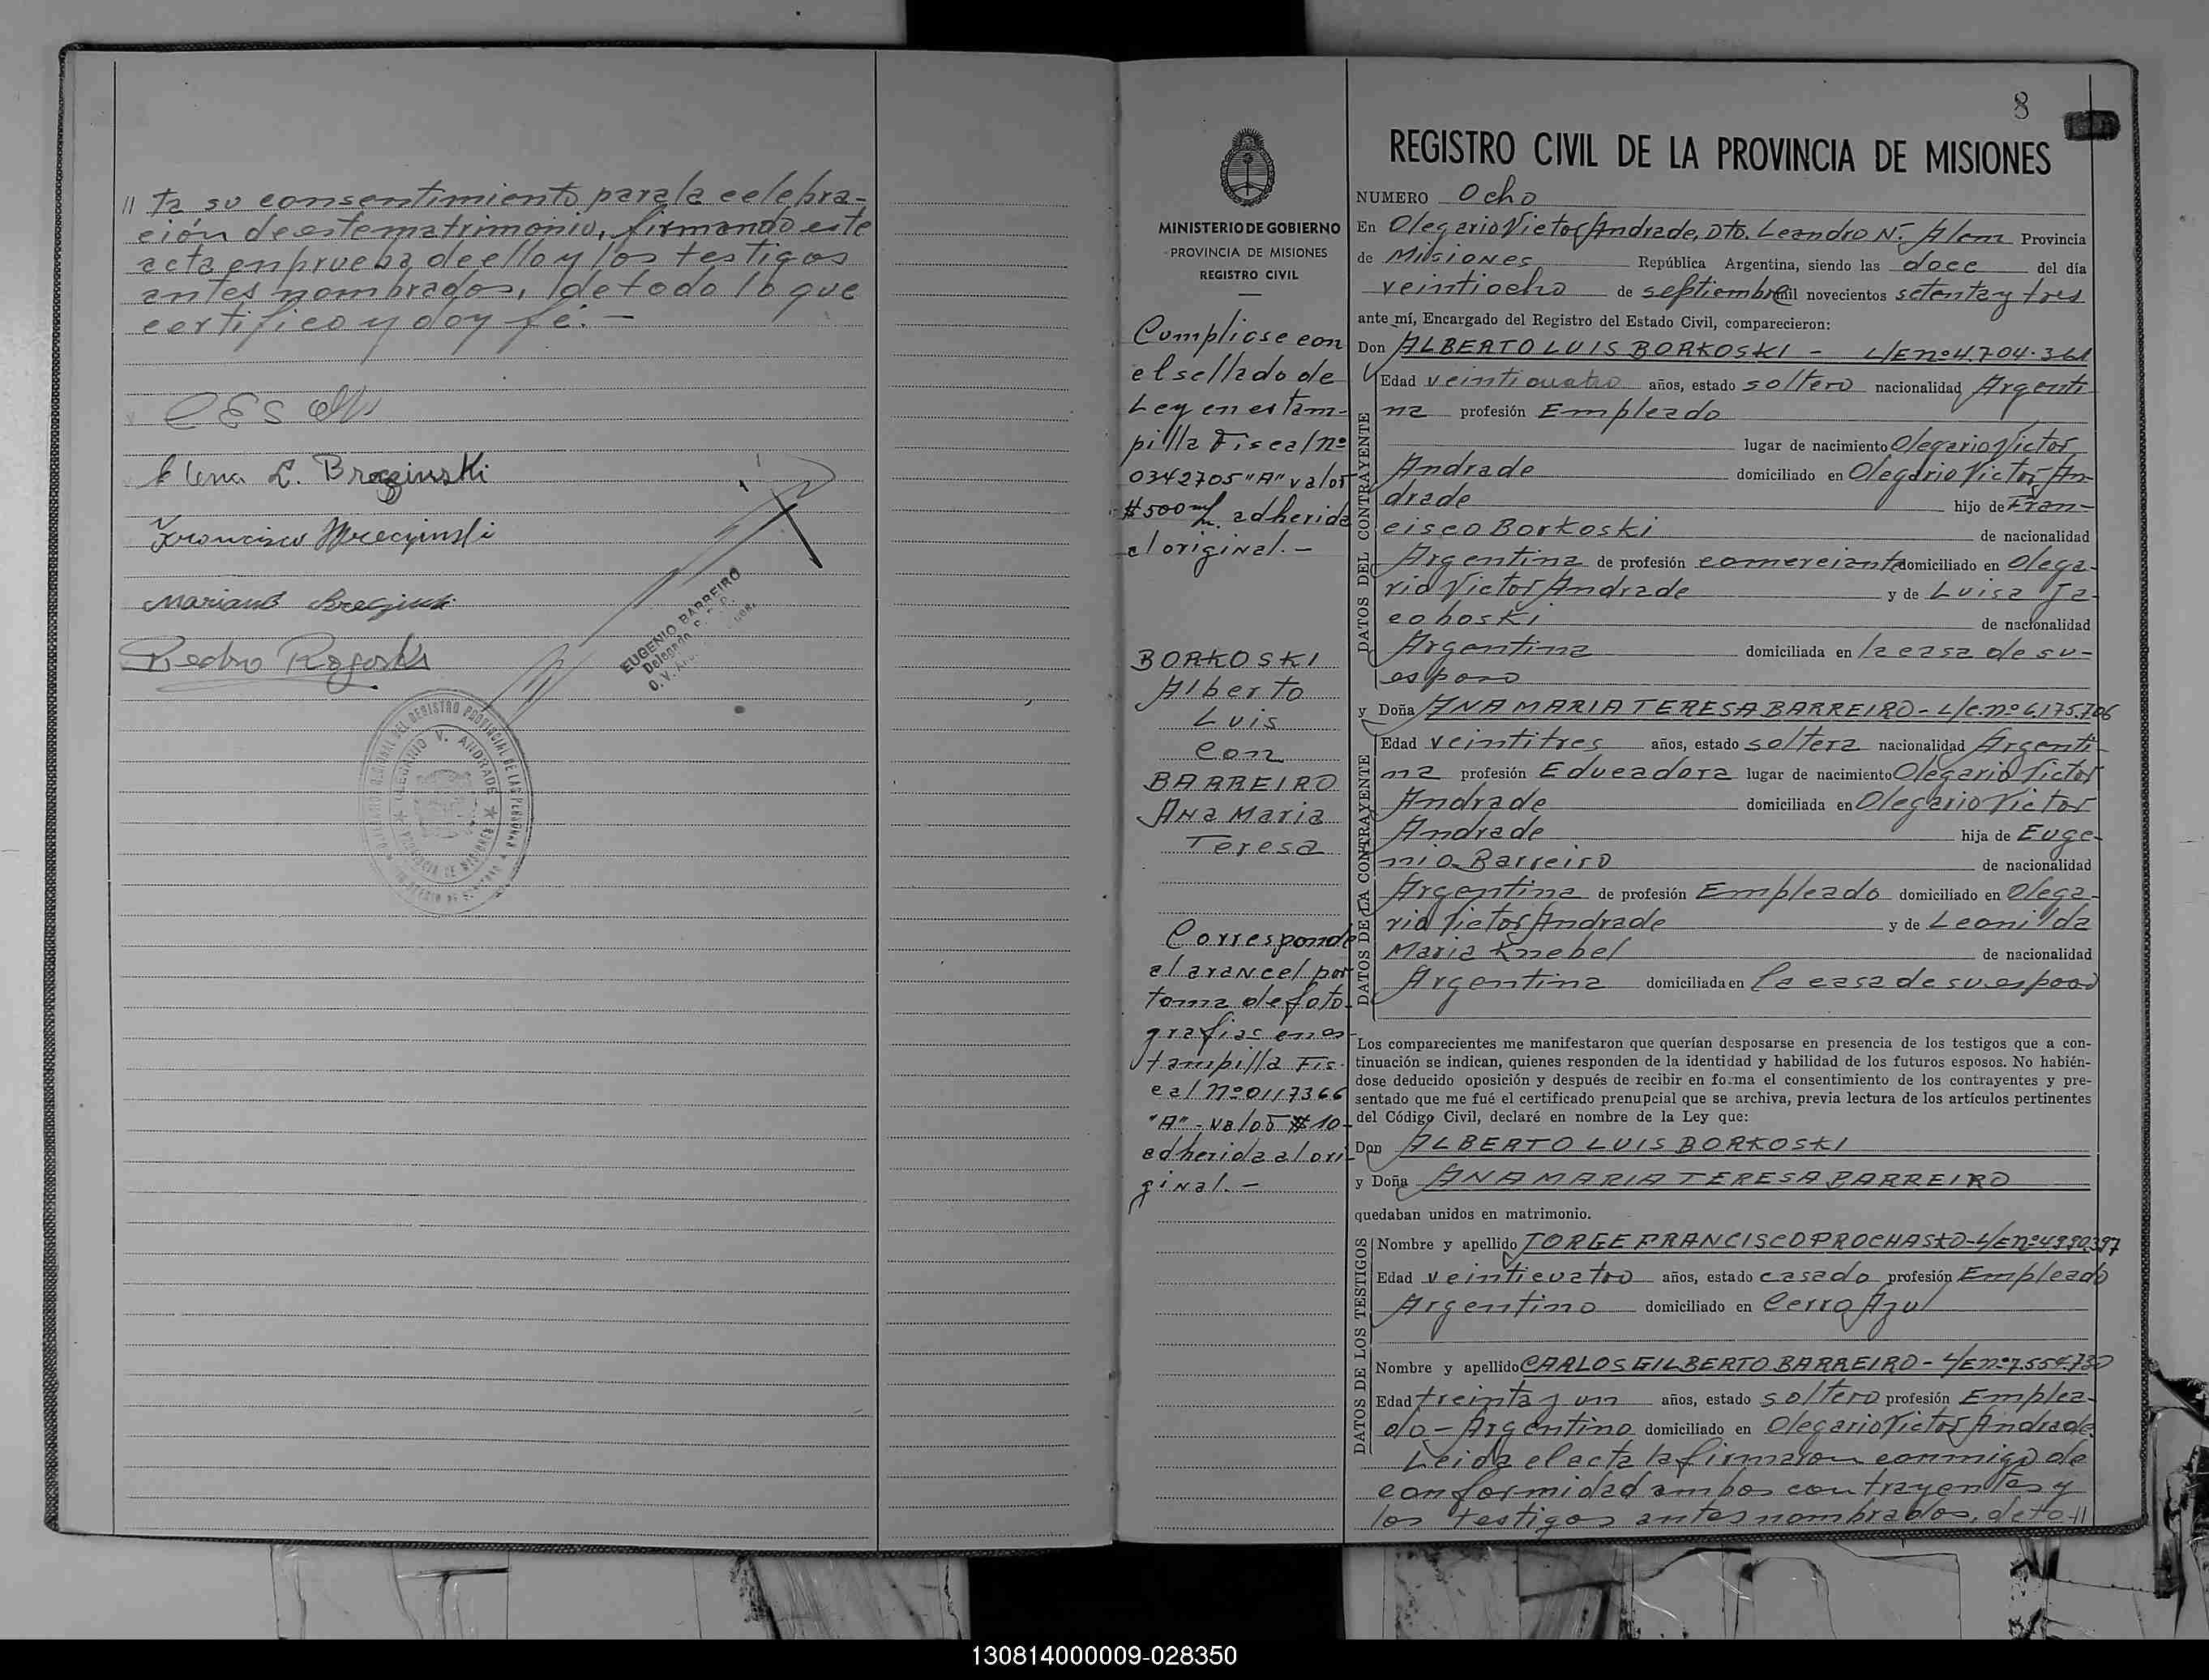 // ta su consentimiento para la celebra-
ción de este matrimonio, firmando este
acta en prueba de ello y los testigos
antes nombrados, de todo lo que
certifico y doy fé.-
Elena L. Breginski
Francisco
Mariano
Pedro
EUGENIO BARREIRO
Delegado
8
MINISTERIO DE GOBIERNO
PROVINCIA DE MISIONES
REGISTRO CIVIL
Cumpliose con
el sellado de
Ley en estam-
pilla Fiscal nº
0342705 "A" valor
$500 adherida
al original.-
BORKOSKI
Alberto
Luis
con
BARREIRO
Ana Maria
Teresa
Corresponde
al arancel por
toma de foto-
grafias en es-
tampilla Fis-
cal Nº 0117366
"A"- valor $10-
adherida al ori-
ginal.-
REGISTRO CIVIL DE LA PROVINCIA DE MISIONES
NUMERO Ocho
En Olegario Victor Andrade, Dto. Leandro N. Alem Provincia
de Misiones República Argentina, siendo las doce del día
veintiocho de septiembre mil novecientos setenta y tres
ante mí, Encargado del Registro del Estado Civil, comparecieron:
Don ALBERTO LUIS BORKOSKI - L/E nº 4.704.361
DATOS DEL CONTRAYENTE
Edad veinticuatro años, estado soltero nacionalidad Argenti
na profesión Empleado
lugar de nacimiento Olegario Victor
Andrade domiciliado en Olegario Victor An-
drade hijo de Fran-
cisco Borkoski de nacionalidad
Argentina de profesión comerciante domiciliado en Olega-
rio Victor Andrade y de Luisa Ja-
coboski de nacionalidad
Argentina domiciliada en la casa de su-
esposo
y Doña ANA MARIA TERESA BARREIRO - L/C. nº 6.175.706
DATOS DE LA CONTRAYENTE
Edad veintitres años, estado soltera nacionalidad Argenti-
na profesión Educadora lugar de nacimiento Olegario Victor
Andrade domiciliada en Olegario Victor
Andrade hija de Euge-
nio Barreiro de nacionalidad
Argentina de profesión Empleado domiciliado en Olega-
rio Victor Andrade y de Leonilda
Maria Knebel de nacionalidad
Argentina domiciliada en la casa de su esposo
Los comparecientes me manifestaron que querían desposarse en presencia de los testigos que a con-
tinuación se indican, quienes responden de la identidad y habilidad de los futuros esposos. No habién-
dose deducido oposición y después de recibir en forma el consentimiento de los contrayentes y pre-
sentado que me fué el certificado prenupcial que se archiva, previa lectura de los artículos pertinentes
del Código Civil, declaré en nombre de la Ley que:
Don ALBERTO LUIS BORKOSKI
y Doña ANA MARIA TERESA BARREIRO
quedaban unidos en matrimonio.
DATOS DE LOS TESTIGOS
Nombre y apellido JORGE FRANCISCO PROCHASKO - L/E nº
Edad veinticuatro años, estado casado profesión Empleado
Argentino domiciliado en Cerro Azul
Nombre y apellido CARLOS GILBERTO BARREIRO - L/E nº 7.554.730
Edad treinta y un años, estado soltero profesión Emplea-
do - Argentino domiciliado en Olegario Victor Andrade.
Leida el acta la firmaron conmigo de
conformidad ambos contrayentes y
los testigos antes nombrados, de to-//
130814000009-028350